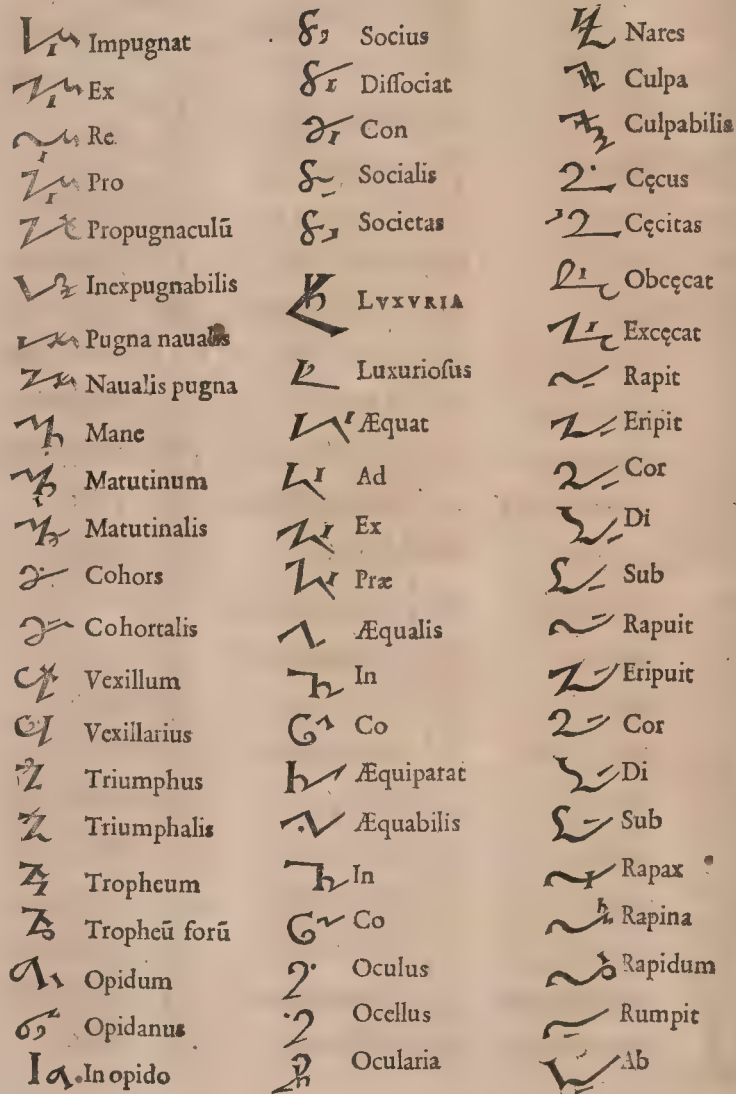 Impugnat
Ex
Re
Pro
Propugnaculū
Inexpugnabilis
Pugna naualis
Naualis pugna
Mane
Matutinum
Matutinalis
Cohors
Cohortalis
Vexillum
Vexillarius
Triumphus
Triumphalis
Tropheum
Tropheū forū
Opidum
Opidanus
In opido
Socius
Diſſociat
Con
Socialis
Societas
LVXVRIA
Luxurioſus
Æquat
Ad
Ex
Præ
Æqualis
In
Co
Æquiparat
Æquabilis
In
Co
Oculus
Ocellus
Ocularia
Nares
Culpa
Culpabilis
Cęcus
Cęcitas
Obcęcat
Excęcat
Rapit
Eripit
Cor
Di
Sub
Rapuit
Eripuit
Cor
Di
Sub
Rapax
Rapina
Rapidum
Rumpit
Ab